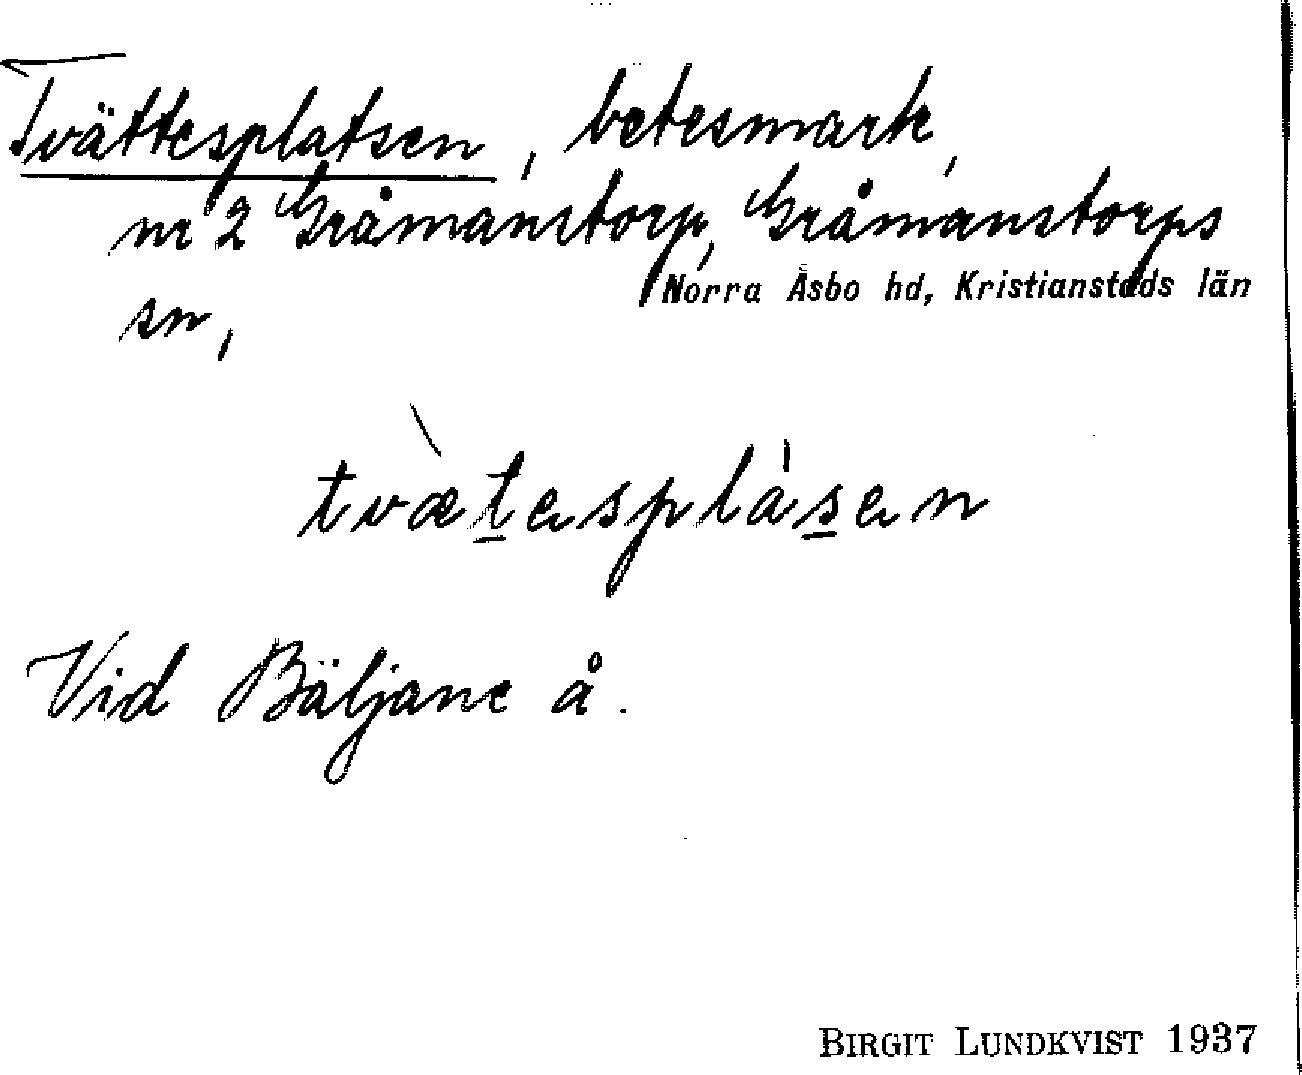 Tvättesplatsen, betesmark,
nr 2 Gråmanstorp, Gråmanstorps
Norra Åsbo hd, Kristianstads län
sn,
tvæ̀t̲əsplás̲ən
Vid Bäljane å.
BIRGIT LUNDKVIST 1937